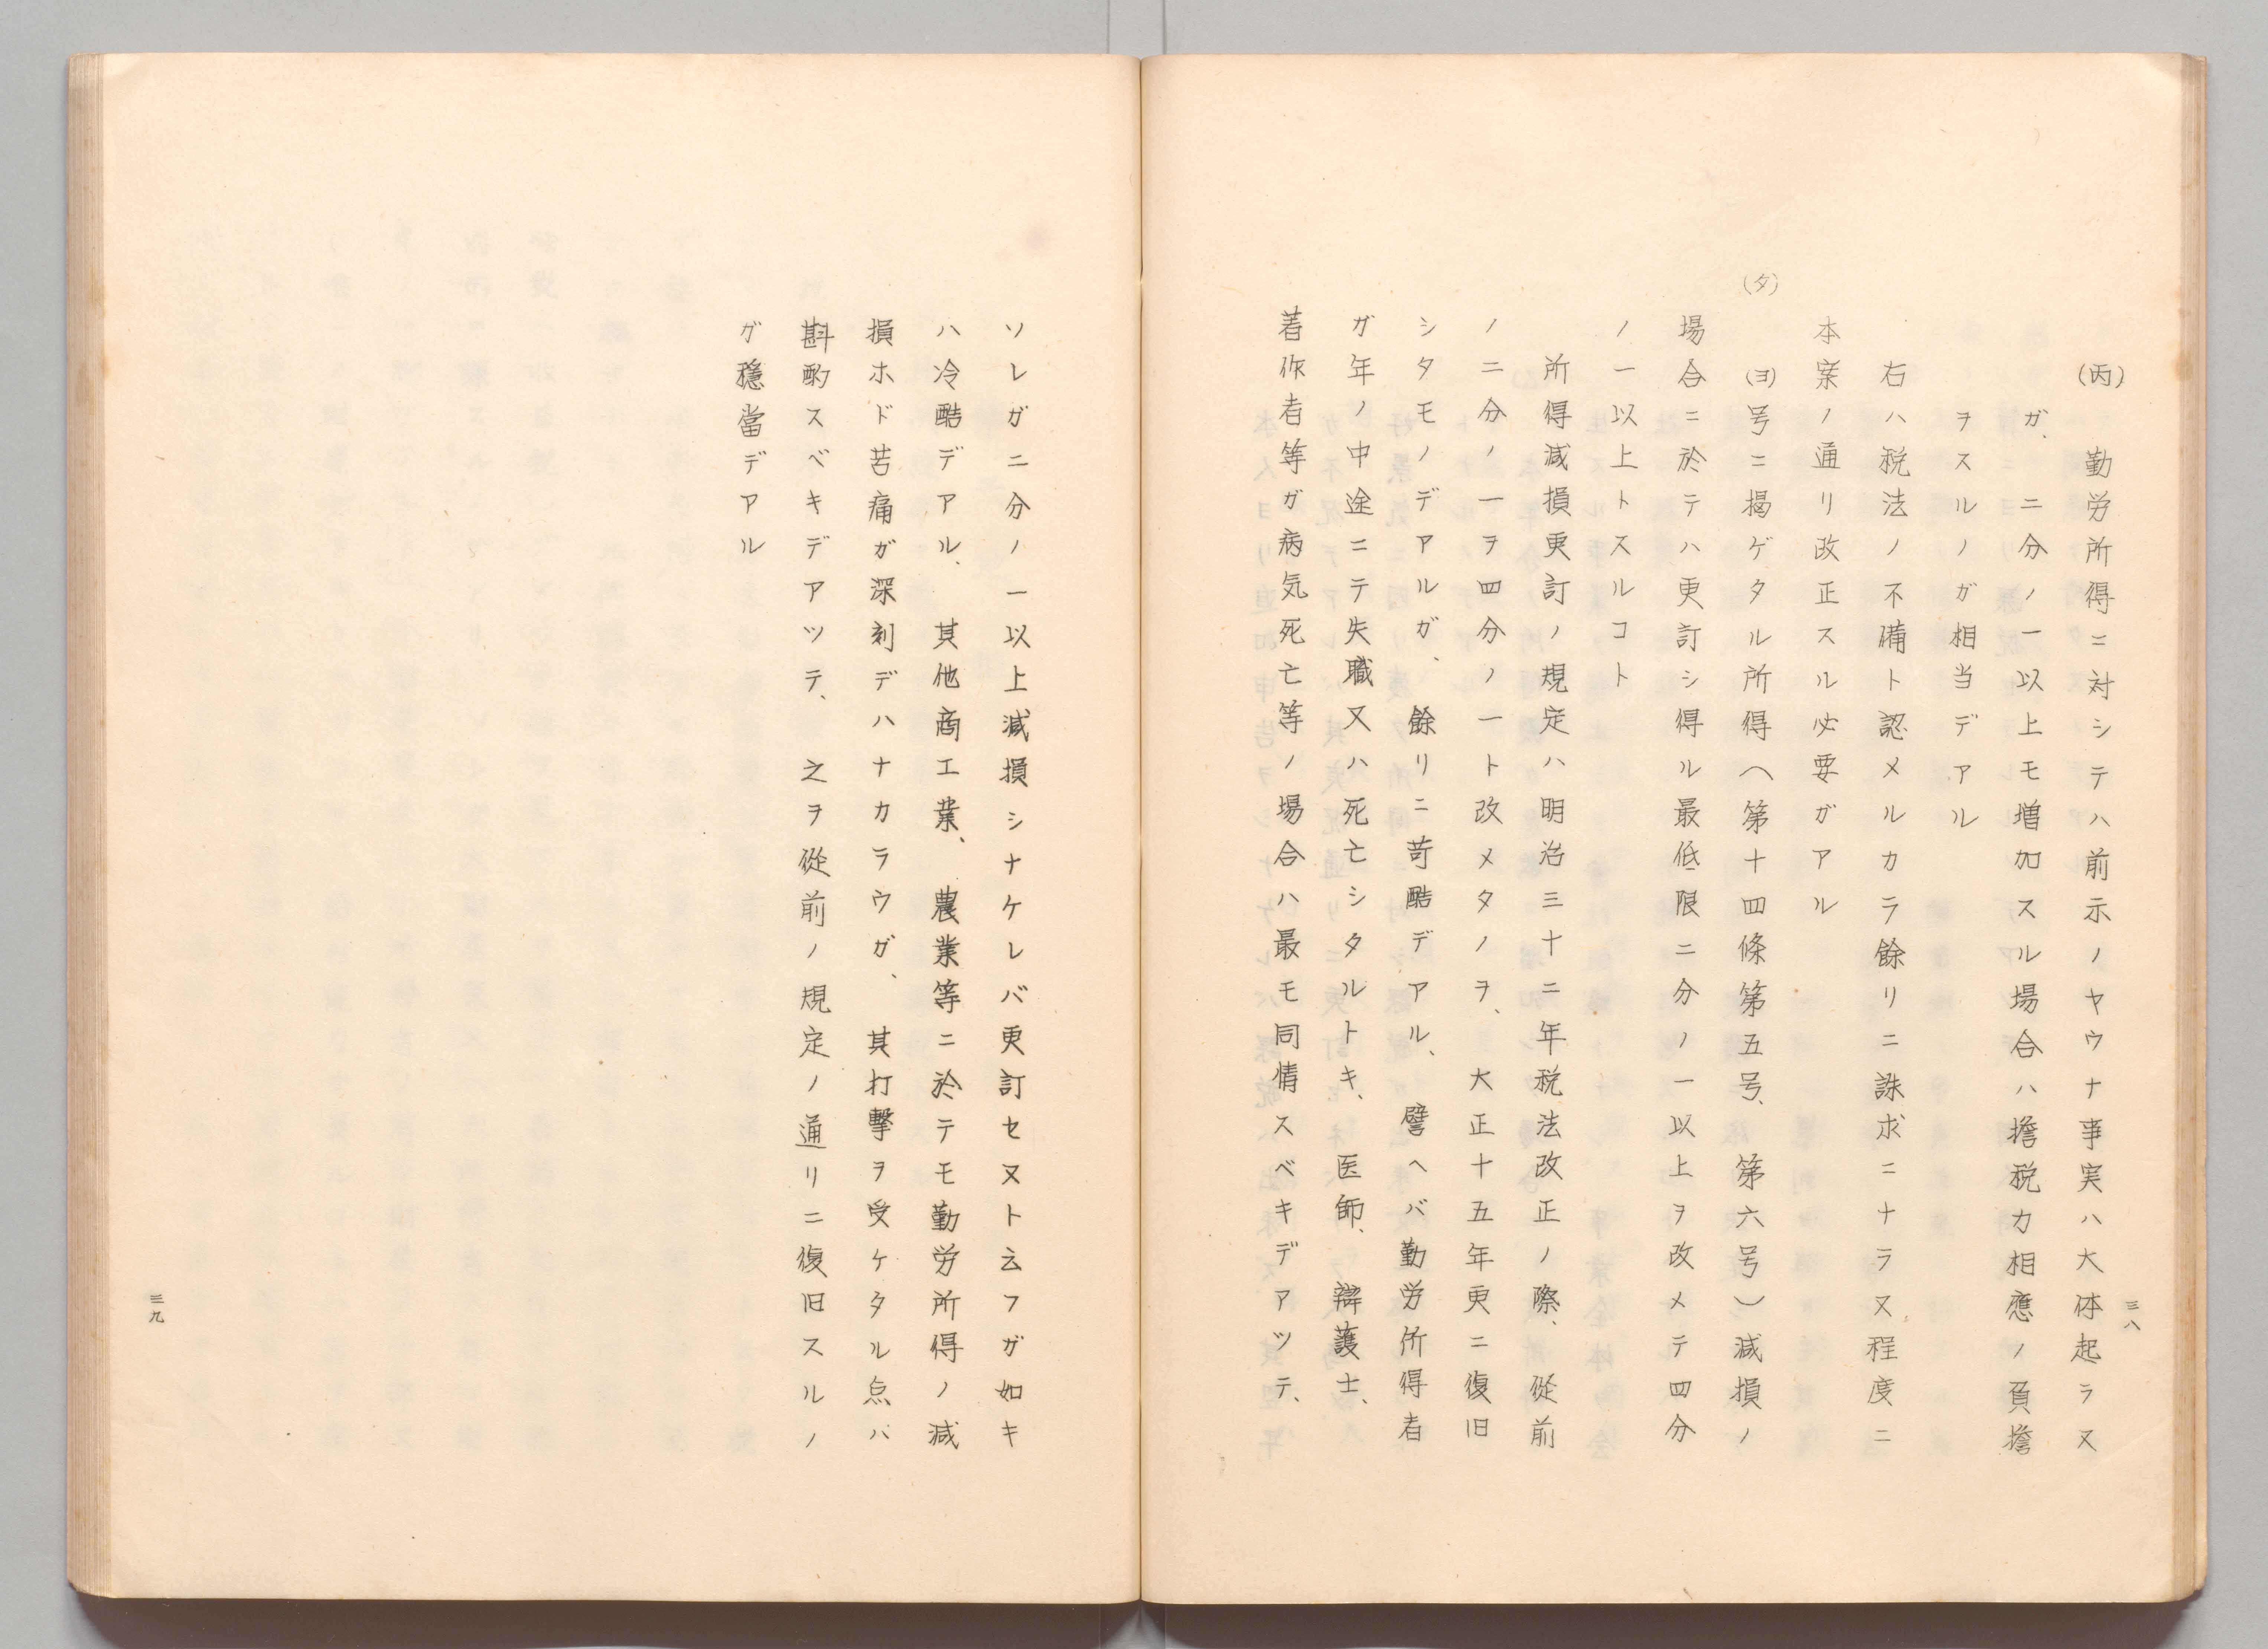 三八
(丙)　勤労所得ニ対シテハ前示ノヤウナ事実ハ大体起ラヌ
ガ、二分ノ一以上モ増加スル場合ハ擔税力相應ノ負擔
ヲスルノガ相当デアル
右ハ税法ノ不備ト認メルカラ餘リニ誅求ニナラヌ程度ニ
本案ノ通リ改正スル必要ガアル
(タ)　(ヨ)号ニ掲ゲタル所得(第十四條第五号、第六号)減損ノ
場合ニ於テハ更訂シ得ル最低限二分ノ一以上ヲ改メテ四分
ノ一以上トスルコト
所得減損更訂ノ規定ハ明治三十二年税法改正ノ際、従前
ノ二分ノ一ヲ四分ノ一ト改メタノヲ、大正十五年更ニ復旧
シタモノデアルガ、餘リニ苛酷デアル、譬ヘバ勤労所得者
ガ年ノ中途ニテ失職又ハ死亡シタルトキ、医師、辯護士、
著作者等ガ病気死亡等ノ場合ハ最モ同情スベキデアツテ、
ソレガ二分ノ一以上減損シナケレバ更訂セヌト云フガ如キ
ハ冷酷デアル、其他商工業、農業等ニ於テモ勤労所得ノ減
損ホド苦痛ガ深刻デハナカラウガ、其打撃ヲ受ケタル点ハ
斟酌スベキデアツテ、之ヲ従前ノ規定ノ通リニ復旧スルノ
ガ穏當デアル
三九